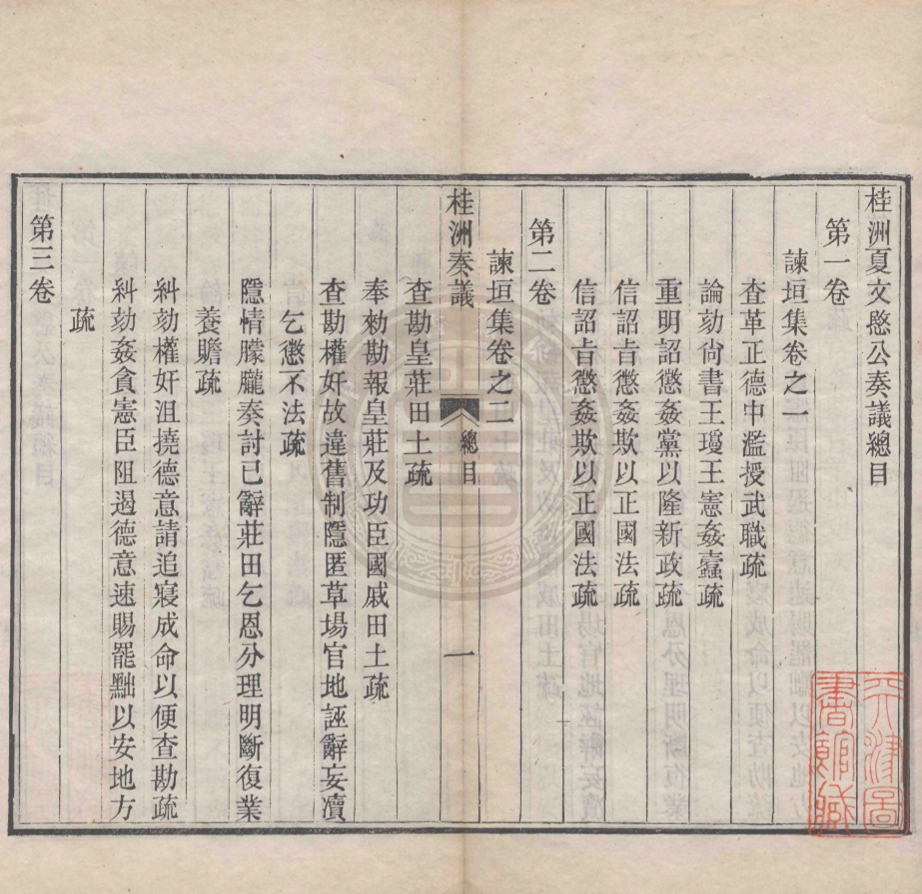 桂洲夏文愍公奏議總目
第一卷
諫垣集卷之一
查革正德中濫授武職疏
論劾尚書王瓊王憲姦蠹疏
重明詔懲姦黨以隆新政疏
信詔㫖懲姦欺以正國法疏
信詔㫖懲姦欺以正國法疏
第二卷
諫垣集卷之二
桂洲奏議
總目
一
查勘皇莊田土疏
奉勑勘報皇莊及功臣國戚田土疏
查勘權奸故違舊制隱匿草場官地誣辭妄瀆
乞懲不法疏
隱情朦朧奏討已辭莊田乞恩分理明斷復業
養贍疏
糾劾權奸沮撓德意請追寢成命以便查勘疏
糾劾姦貪憲臣阻遏德意速賜罷黜以安地方
疏
第三卷
天津圖
書館藏